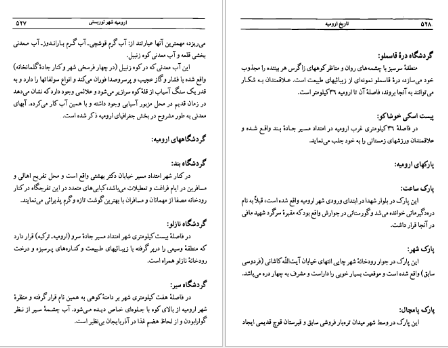 ۵۲۸
تاریخ ارومیه
گردشگاه درۀ قاسملو:
منطقۀ سرسبز با چشمه‌های روان و مناظر کوههای زاگرس هر بیننده را مجذوب
خود می‌سازد، درۀ قاسملو نمونه‌ای از زیبائیهای طبیعت است. علاقمندان به شکار
می‌توانند به آنجا بروند، فاصلۀ آن تا ارومیه ۳۹ کیلومتر است.
پیست اسکی خوشاکو:
در فاصلۀ ۳۹ کیلومتری غرب ارومیه در امتداد مسیر جادۀ بند واقع شده و
علاقمندان ورزشهای زمستانی را به خود جلب می‌نماید.
پارکهای ارومیه:
پارک ساعت:
این پارک در بلوار شهدا در ابتدای ورودی شهر ارومیه واقع شده است، قبلاً به نام
دره‌گیرمانی خوانده می‌شد و گورستانی در جوارش واقع بود که مقبرۀ سرگرد شهید مافی
در آنجا قرار داشت.
پارک شهر:
این پارک در جوار رودخانۀ شهر چایی انتهای خیابان آیت‌الله کاشانی (فردوسی
سابق) واقع شده است و موقعیت بسیار خوبی را داراست و مشرف به چهار دره می‌باشد.
پارک پامچال:
این پارک در وسط شهر میدان تره‌بار فروشی سابق و قبرستان قوچ قدیمی ایجاد
ارومیه شهر توریستی
۵۲۷
می‌ریزد، مهمترین آنها عبارتند از: آب گرم قوشچی، آب گرم باراندوز، آب معدنی
بخشی قلعه و آب معدنی کوه زنبیل.
این آب معدنی که در کوه زنبیل (در چهار فرسخی شهر و کنار جادۀ گلمانخانه)
واقع شده با فشار و گاز عجیب و پرسروصدا فوران می‌کند و انواع سولفاتها را دارد و به
قدر یک سنگ آسیاب از قلۀ کوه سرازیر می‌شود و علائمی وجود دارد که نشان می‌دهد
در زمان قدیم در محل مزبور آسیابی وجود داشته و با همین آب کار می‌کرده. آبهای
معدنی به طور مشروح در بخش جغرافیای ارومیه ذکر شده است.
گردشگاههای ارومیه:
گردشگاه بند:
در کنار شهر امتداد مسیر خیابان دکتر بهشتی واقع است و محل تفریح اهالی و
مسافرین در ایام فراغت و تعطیلات می‌باشد، کبابی‌های متعدد در این تفرجگاه در کنار
رودخانه مصفا از مهمانان و مسافران با بهترین گوشت تازه و گرم پذیرائی می‌نمایند.
گردشگاه نازلو:
در فاصلۀ بیست کیلومتری شهر امتداد مسیر جادۀ سرو (ارومیه، ترکیه) قرار دارد
که منطقۀ وسیعی را دربر گرفته با زیبائیهای طبیعت و کناره‌های پرسبزه و درخت
رودخانۀ نازلو همراه است.
گردشگاه سیر:
در فاصلۀ هفت کیلومتری شهر بر دامنۀ کوهی به همین نام قرار گرفته و منظرۀ
شهر ارومیه از بالای کوه با جلوه‌ای خاص دیده می‌شود. آب چشمۀ سیر از نظر
گوارابودن و از لحاظ هضم غذا در آذربایجان بی‌نظیر است.